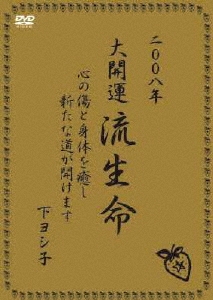 DVD
VIDEO
二〇〇八年
大開運
流生命
心の傷と身体を癒し
新たな道が開けます
下ヨシ子